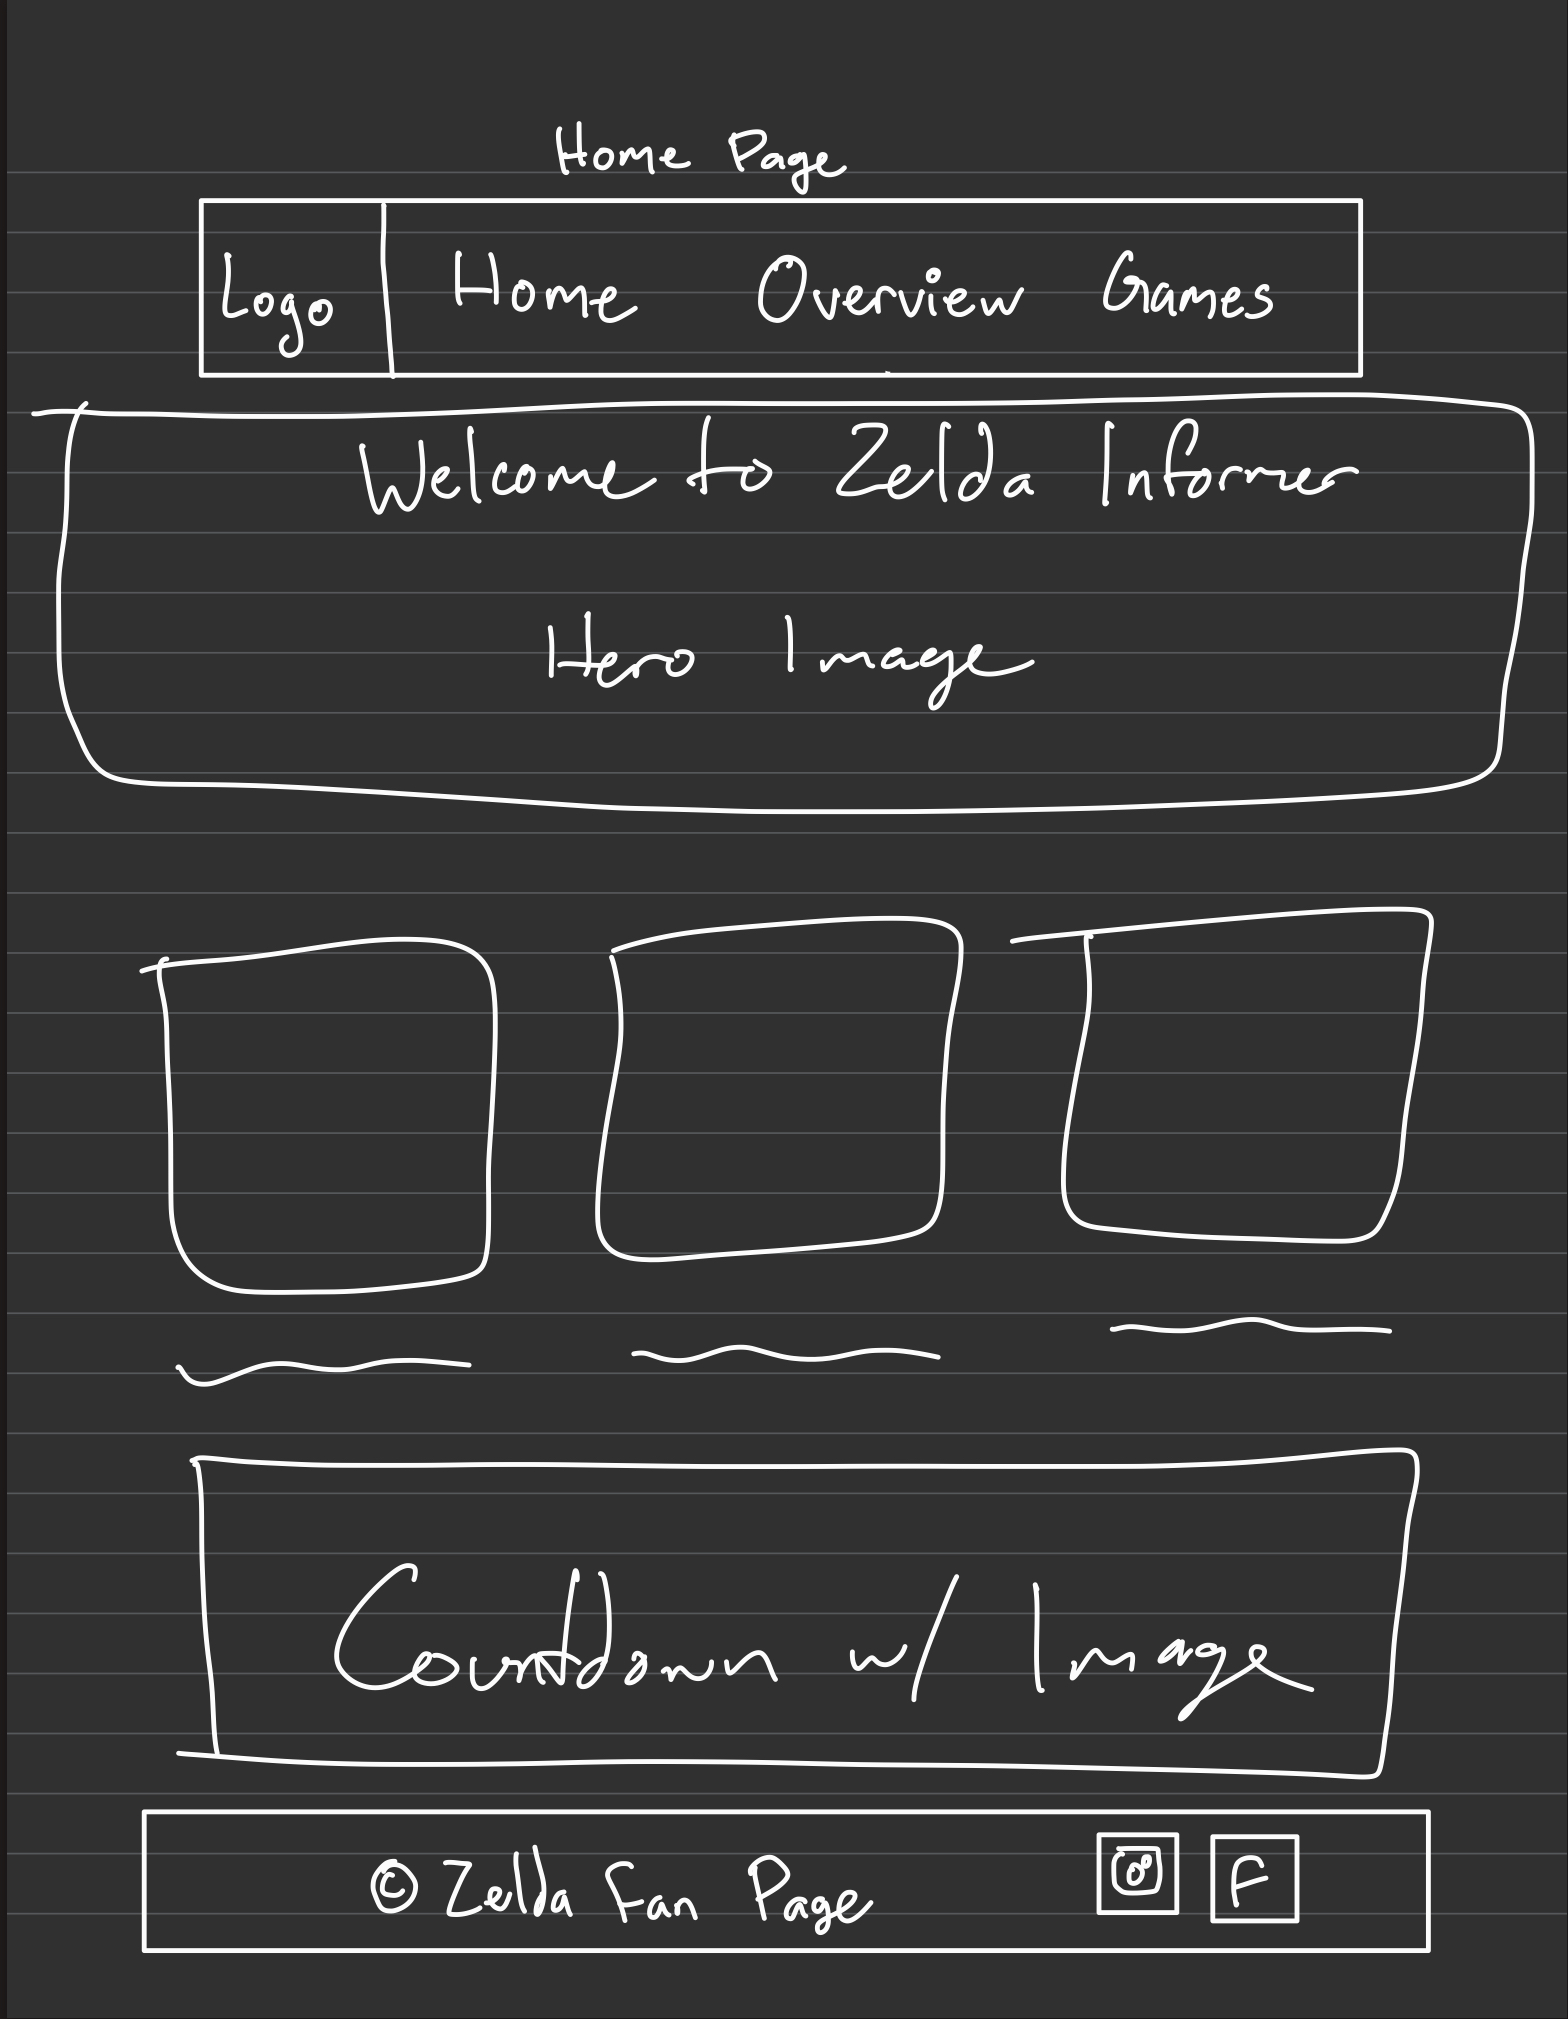 Home Page
Logo Home Overview Games
Welcome to Zelda Informer
Hero Image
Countdown w/ Image
© Zelda Fan Page F